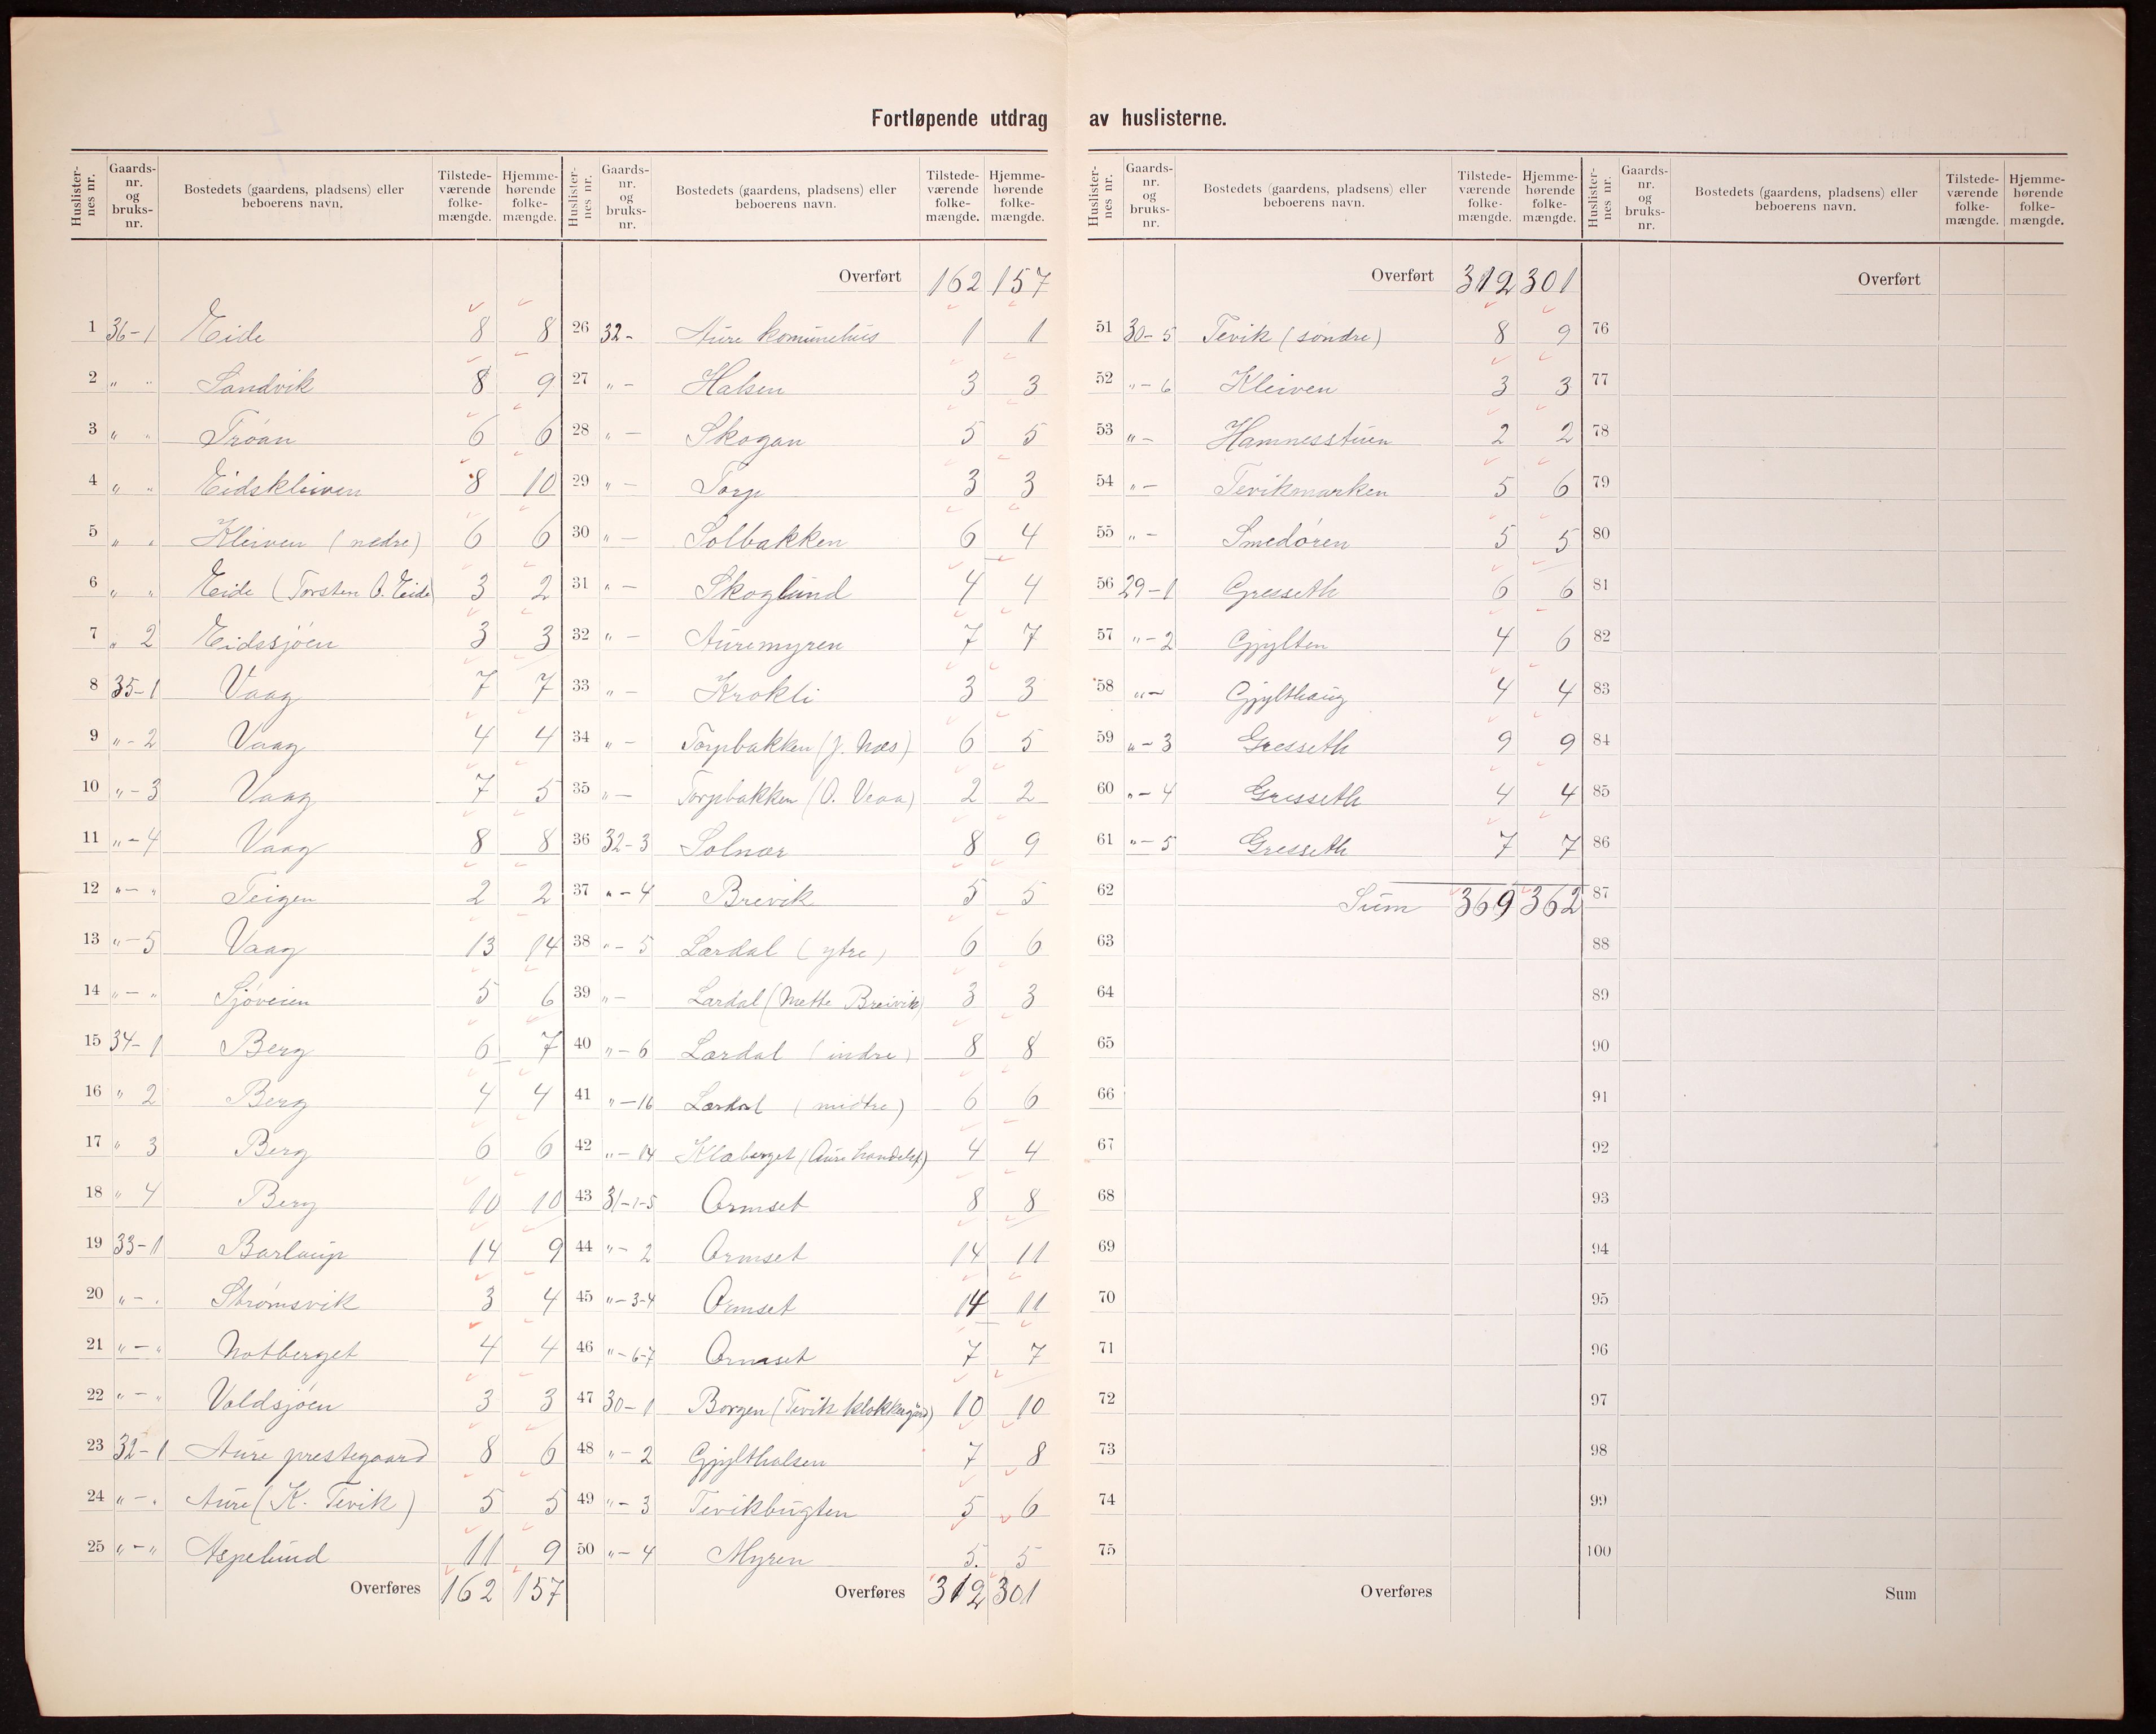 Fortløpende utdrag av huslisterne.
Huslisternes nr. | Gaards-nr. og bruks-nr. | Bostedets (gaardens, pladsens) eller beboerens navn. | Tilstedeværende folkemængde. | Hjemmehørende folkemængde.
1 36-1 Eide 8 8
2 " " Sandvik 8 9
3 " " Trøan 6 6
4 " " Eidskleiven 8 10
5 " " Kleiven (nedre) 6 6
6 " " Eide (Torsten O. Eide) 3 2
7 " 2 Eidssjøen 3 3
8 35-1 Vaag 7 7
9 "-2 Vaag 4 4
10 "-3 Vaag 7 5
11 "-4 Vaag 8 8
12 "-" Teigen 2 2
13 "-5 Vaag 13 14
14 "-" Sjøveien 5 6
15 34-1 Berg 6 7
16 " 2 Berg 4 4
17 " 3 Berg 6 6
18 " 4 Berg 10 10
19 33-1 Barlaup 14 9
20 "-" Strømsvik 3 4
21 "-" Notberget 4 4
22 "-" Valdsjøen 3 3
23 32-1 Aure prestegaard 8 6
24 "-" Aure (K. Tevik) 5 5
25 "-" Aspelund 11 9
Overføres 162 157
Huslisternes nr. | Gaards-nr. og bruks-nr. | Bostedets (gaardens, pladsens) eller beboerens navn. | Tilstedeværende folkemængde. | Hjemmehørende folkemængde.
Overført 162 157
26 32- Aure komunehus 1 1
27 "- Halsen 3 3
28 "- Skogan 5 5
29 "- Torp 3 3
30 "- Solbakken 6 4
31 "- Skoglund 4 4
32 "- Auremyren 7 7
33 "- Krokli 3 3
34 "- Torpbakken (J. Næs) 6 5
35 "- Torpbakken (O. Veaa) 2 2
36 32-3 Solnør 8 9
37 "-4 Brevik 5 5
38 "-5 Lærdal (ytre) 6 6
39 "- Lærdal (Mette Breivik) 3 3
40 "-6 Lærdal (indre) 8 8
41 "-16 Lærdal (midtre) 6 6
42 "-14 Klaberget (Aure handelsf) 4 4
43 31-1-5 Ormset 8 8
44 "-2 Ormset 14 11
45 "-3-4 Ormset 14 11
46 "-6-7 Ormset 7 7
47 30-1 Borgen (Tevik klokkergård) 10 10
48 "-2 Gjylthalsen 7 8
49 "-3 Tevikbugten 5 6
50 "-4 Myren 5 5
Overføres 312 301
Huslisternes nr. | Gaards-nr. og bruks-nr. | Bostedets (gaardens, pladsens) eller beboerens navn. | Tilstedeværende folkemængde. | Hjemmehørende folkemængde.
Overført 312 301
51 30-5 Tevik (søndre) 8 9
52 "-6 Kleiven 3 3
53 "- Hamnesstuen 2 2
54 "- Tevikmarken 5 6
55 "- Smedøren 5 5
56 29-1 Gresseth 6 6
57 "-2 Gjylten 4 6
58 "- Gjylthaug 4 4
59 "-3 Gresseth 9 9
60 "-4 Gresseth 4 4
61 "-5 Gresseth 7 7
62 Sum 369 362
63
64
65
66
67
68
69
70
71
72
73
74
75
Overføres
Huslisternes nr. | Gaards-nr. og bruks-nr. | Bostedets (gaardens, pladsens) eller beboerens navn. | Tilstedeværende folkemængde. | Hjemmehørende folkemængde.
Overført
76
77
78
79
80
81
82
83
84
85
86
87
88
89
90
91
92
93
94
95
96
97
98
99
100
Sum